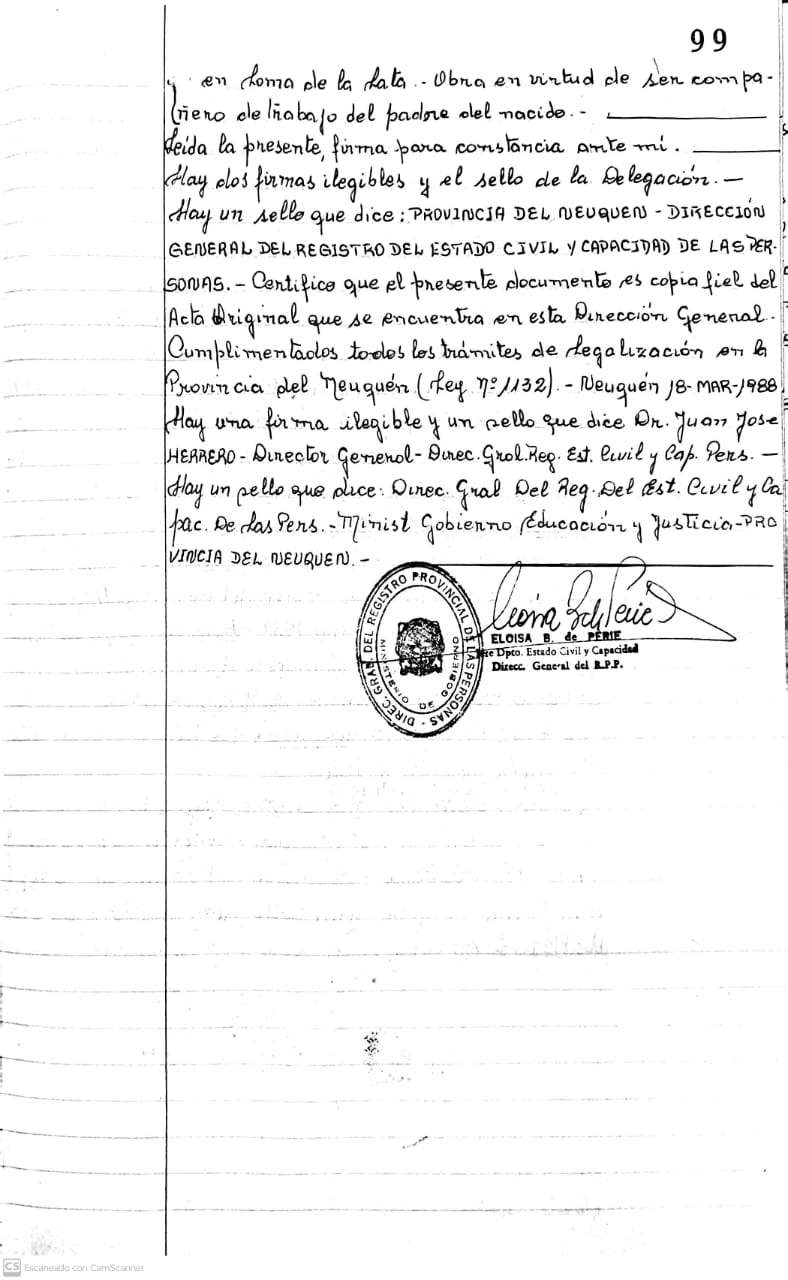 99
y en Loma de la Lata.- Obra en virtud de ser compa-
ñero de trabajo del padre del nacido.-
Leída la presente, firma para constancia ante mi.
Hay dos firmas ilegibles y el sello de la Delegación.-
Hay un sello que dice: PROVINCIA DEL NEUQUEN - DIRECCIÓN
GENERAL DEL REGISTRO DEL ESTADO CIVIL Y CAPACIDAD DE LAS PER-
SONAS.- Certifico que el presente documento es copia fiel del
Acta Original que se encuentra en esta Dirección General.
Cumplimentados todos los trámites de Legalización en la
Provincia del Neuquén (Ley nº 1132).- Neuquén 18-MAR-1988
Hay una firma ilegible y un sello que dice Dr. Juan Jose
HERRERO - Director General - Direc. Gral. Reg. Est. Civil y Cap. Pers. -
Hay un sello que dice: Direc. Gral Del Reg. Del Est. Civil y Ca
pac. De Las Pers. - Minist Gobierno Educación y Justicia-PRO
VINCIA DEL NEUQUEN.-
DIREC. GRAL. DEL REGISTRO PROVINCIAL DE LAS PERSONAS
MINISTERIO DE GOBIERNO
ELOISA B. de PERIE
Dpto. Estado Civil y Capacidad
Direcc. General del R.P.P.
CS Escaneado con CamScanner